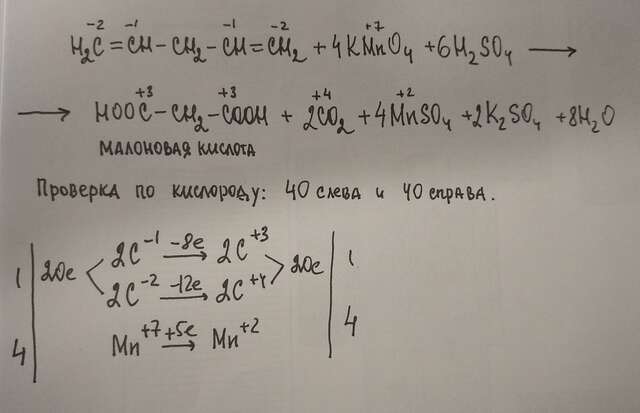 -2 -1 -1 -2 +7
H₂C=CH-CH₂-CH=CH₂ +4KMnO₄ +6H₂SO₄ ⟶
+3 +3 +4 +2
⟶ HOOC-CH₂-COOH + 2CO₂ +4MnSO₄ +2K₂SO₄ +8H₂O
МАЛОНОВАЯ КИСЛОТА
Проверка по кислороду: 40 слева и 40 справа.
2C⁻¹ -8e→ 2C⁺³
1 | 20e < > 20e | 1
2C⁻² -12e→ 2C⁺⁴
4 | Mn⁺⁷ +5e→ Mn⁺² | 4